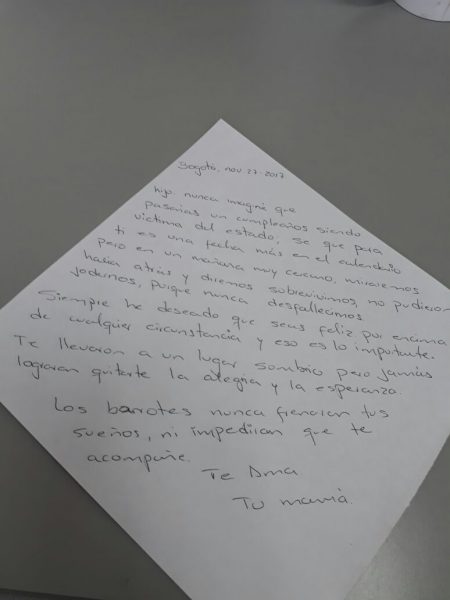 Bogotá, nov 27-2017
hijo: nunca imaginé que
pasarias un cumpleaños siendo
victima del estado, se que para
ti es una fecha más en el calendario
pero en un mañana muy cercano, miraremos
hacia atrás y diremos sobrevivimos, no pudieron
jodernos, porque nunca desfallecimos
Siempre he deseado que seas feliz por encima
de cualquier circunstancia y eso es lo importante.
Te llevaron a un lugar sombrio pero jamás
lograran quitarte la alegria y la esperanza.
Los barrotes nunca frenaran tus
sueños, ni impediran que te
acompañe.
Te Ama
Tu mamá.